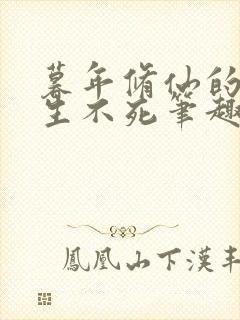 暮年脩仙的
生不死筆趣
鳳凰山下漢丰